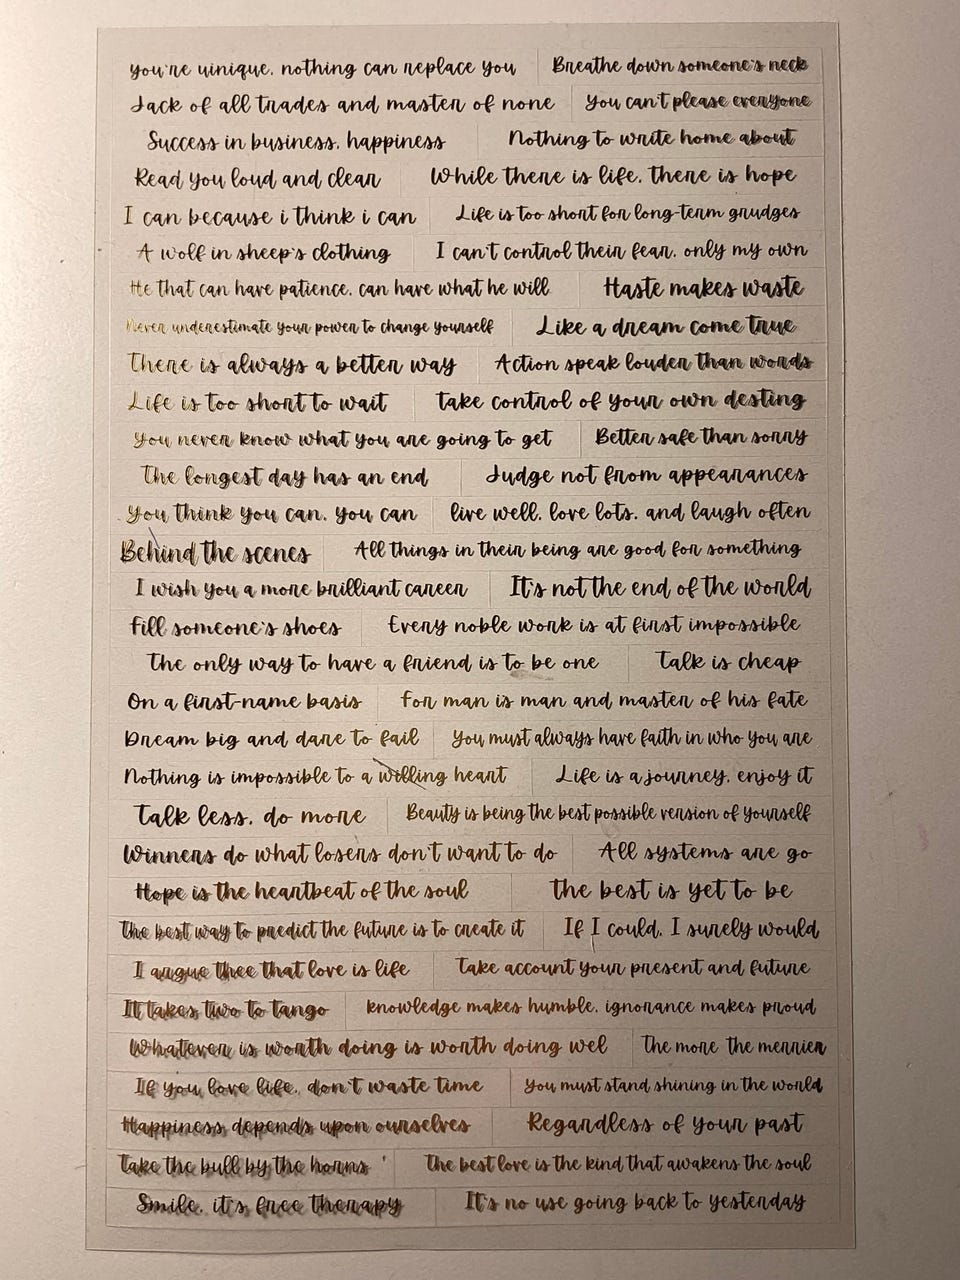 you're uinique, nothing can replace you Breathe down someone's neck
Jack of all trades and master of none You can't please everyone
Success in business, happiness Nothing to write home about
Read you loud and clear While there is life, there is hope
I can because i think i can Life is too short for long-term grudges
A wolf in sheep's clothing I can't control their fear, only my own
He that can have patience, can have what he will Haste makes waste
Never underestimate your power to change yourself Like a dream come true
There is always a better way Action speak louder than words
Life is too short to wait take control of your own desting
You never know what you are going to get Better safe than sorry
The longest day has an end Judge not from appearances
You think you can, you can live well, love lots, and laugh often
Behind the scenes All things in their being are good for something
I wish you a more brilliant career It's not the end of the world
Fill someone's shoes Every noble work is at first impossible
The only way to have a friend is to be one Talk is cheap
On a first-name basis For man is man and master of his fate
Dream big and dare to fail You must always have faith in who you are
Nothing is impossible to a willing heart Life is a journey, enjoy it
Talk less, do more Beauty is being the best possible version of yourself
Winners do what losers don't want to do All systems are go
Hope is the heartbeat of the soul the best is yet to be
The best way to predict the future is to create it If I could, I surely would
I argue thee that love is life Take account your present and future
It takes two to tango knowledge makes humble, ignorance makes proud
Whatever is worth doing is worth doing wel The more the merrier
If you love life, don't waste time You must stand shining in the world
Happiness depends upon ourselves Regardless of your past
Take the bull by the horns The best love is the kind that awakens the soul
Smile, it's free therapy It's no use going back to yesterday